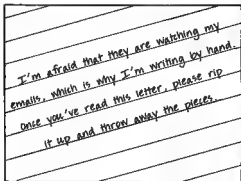 I'm afraid that they are watching my
emails, which is why I'm writing by hand.
Once you've read this letter, please rip
it up and throw away the pieces.